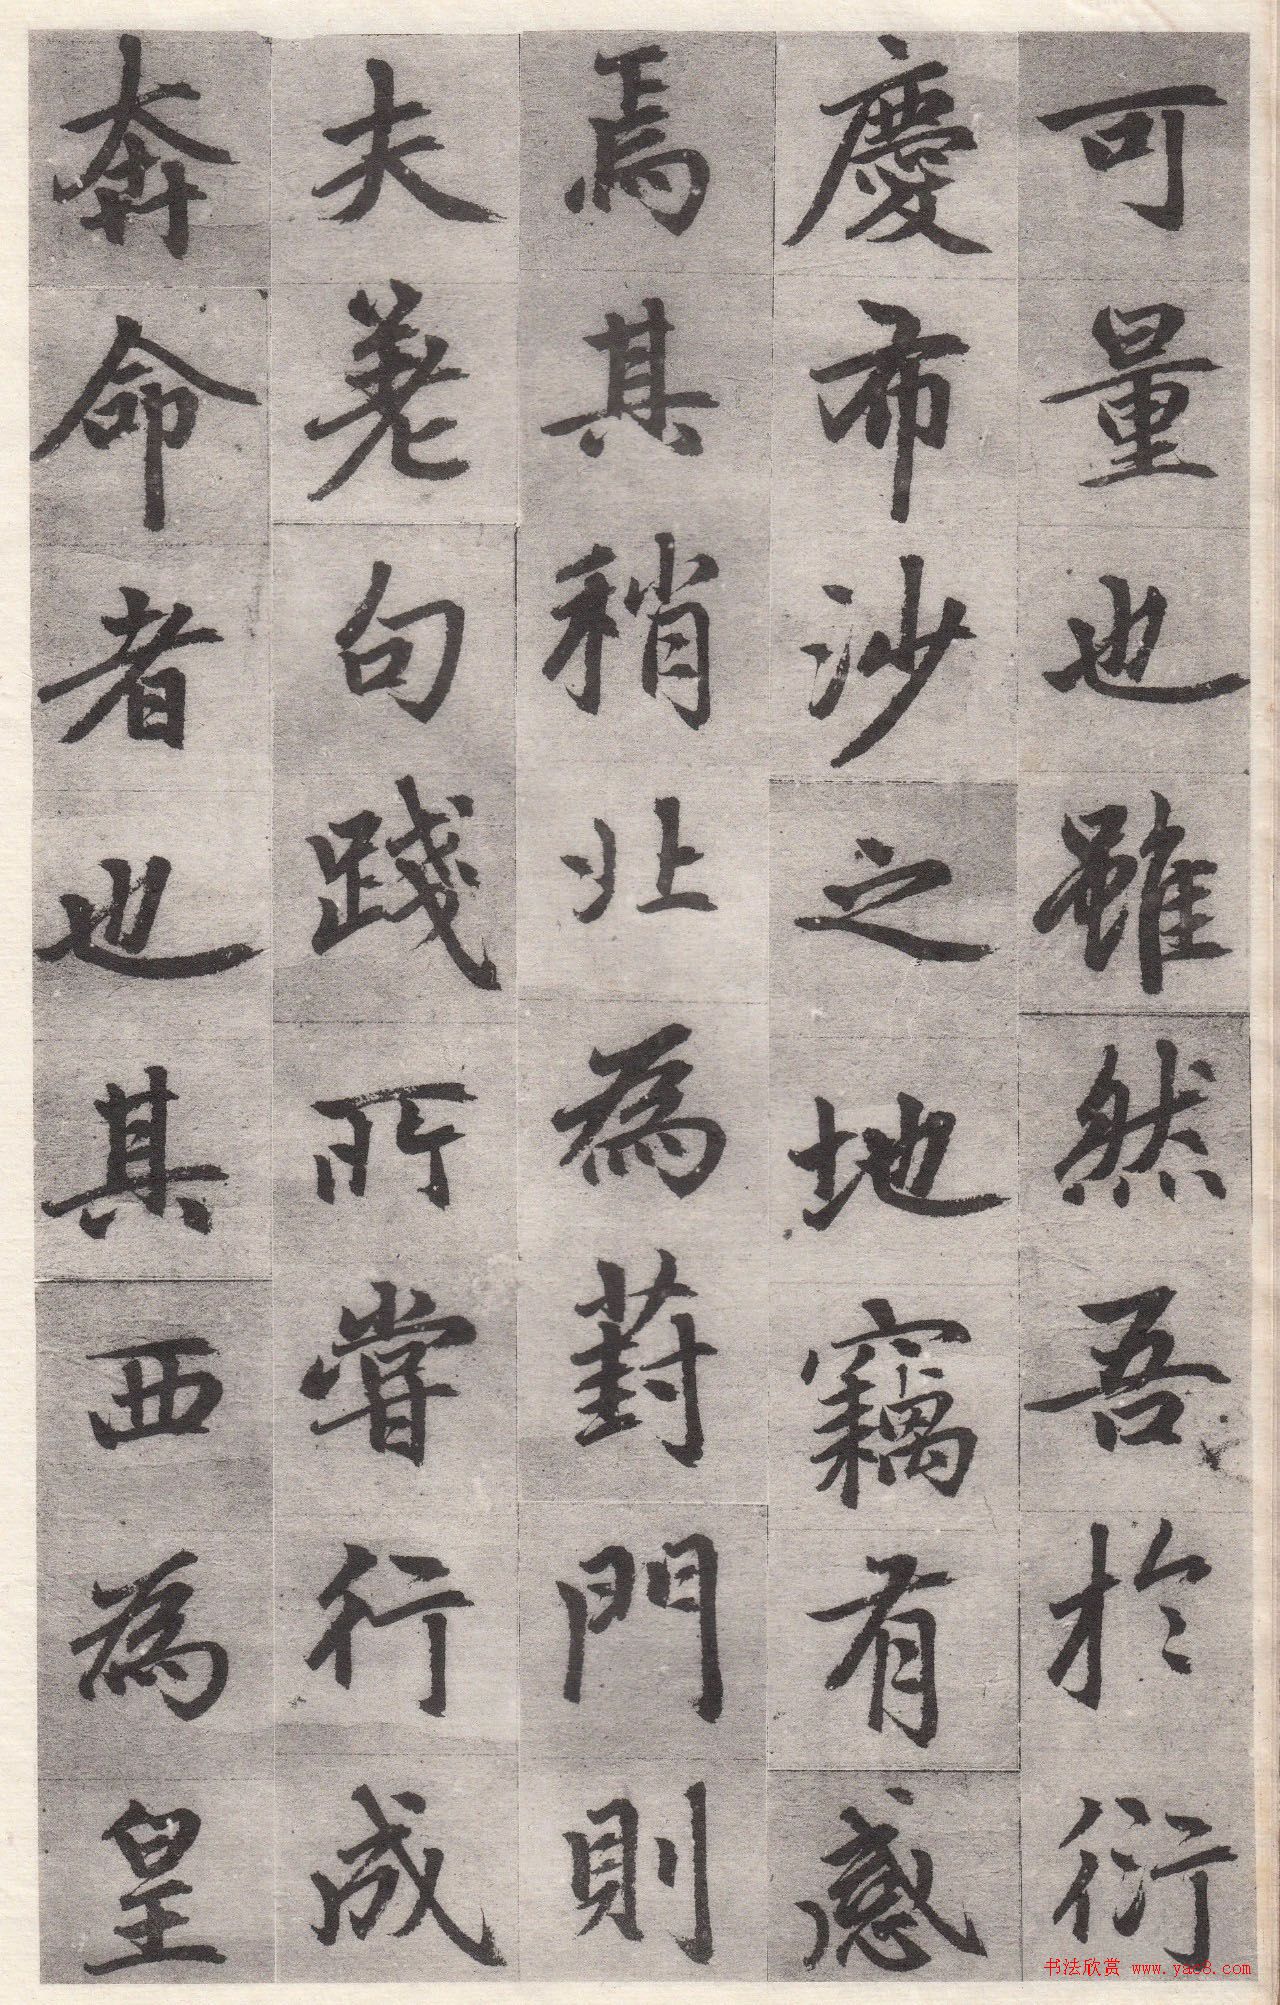 可量也雖然吾於衍
慶布沙之地竊有感
焉其稍北為葑門則
夫差句踐所嘗行成
奔命者也其西為皇
书法欣赏 www.yac8.com